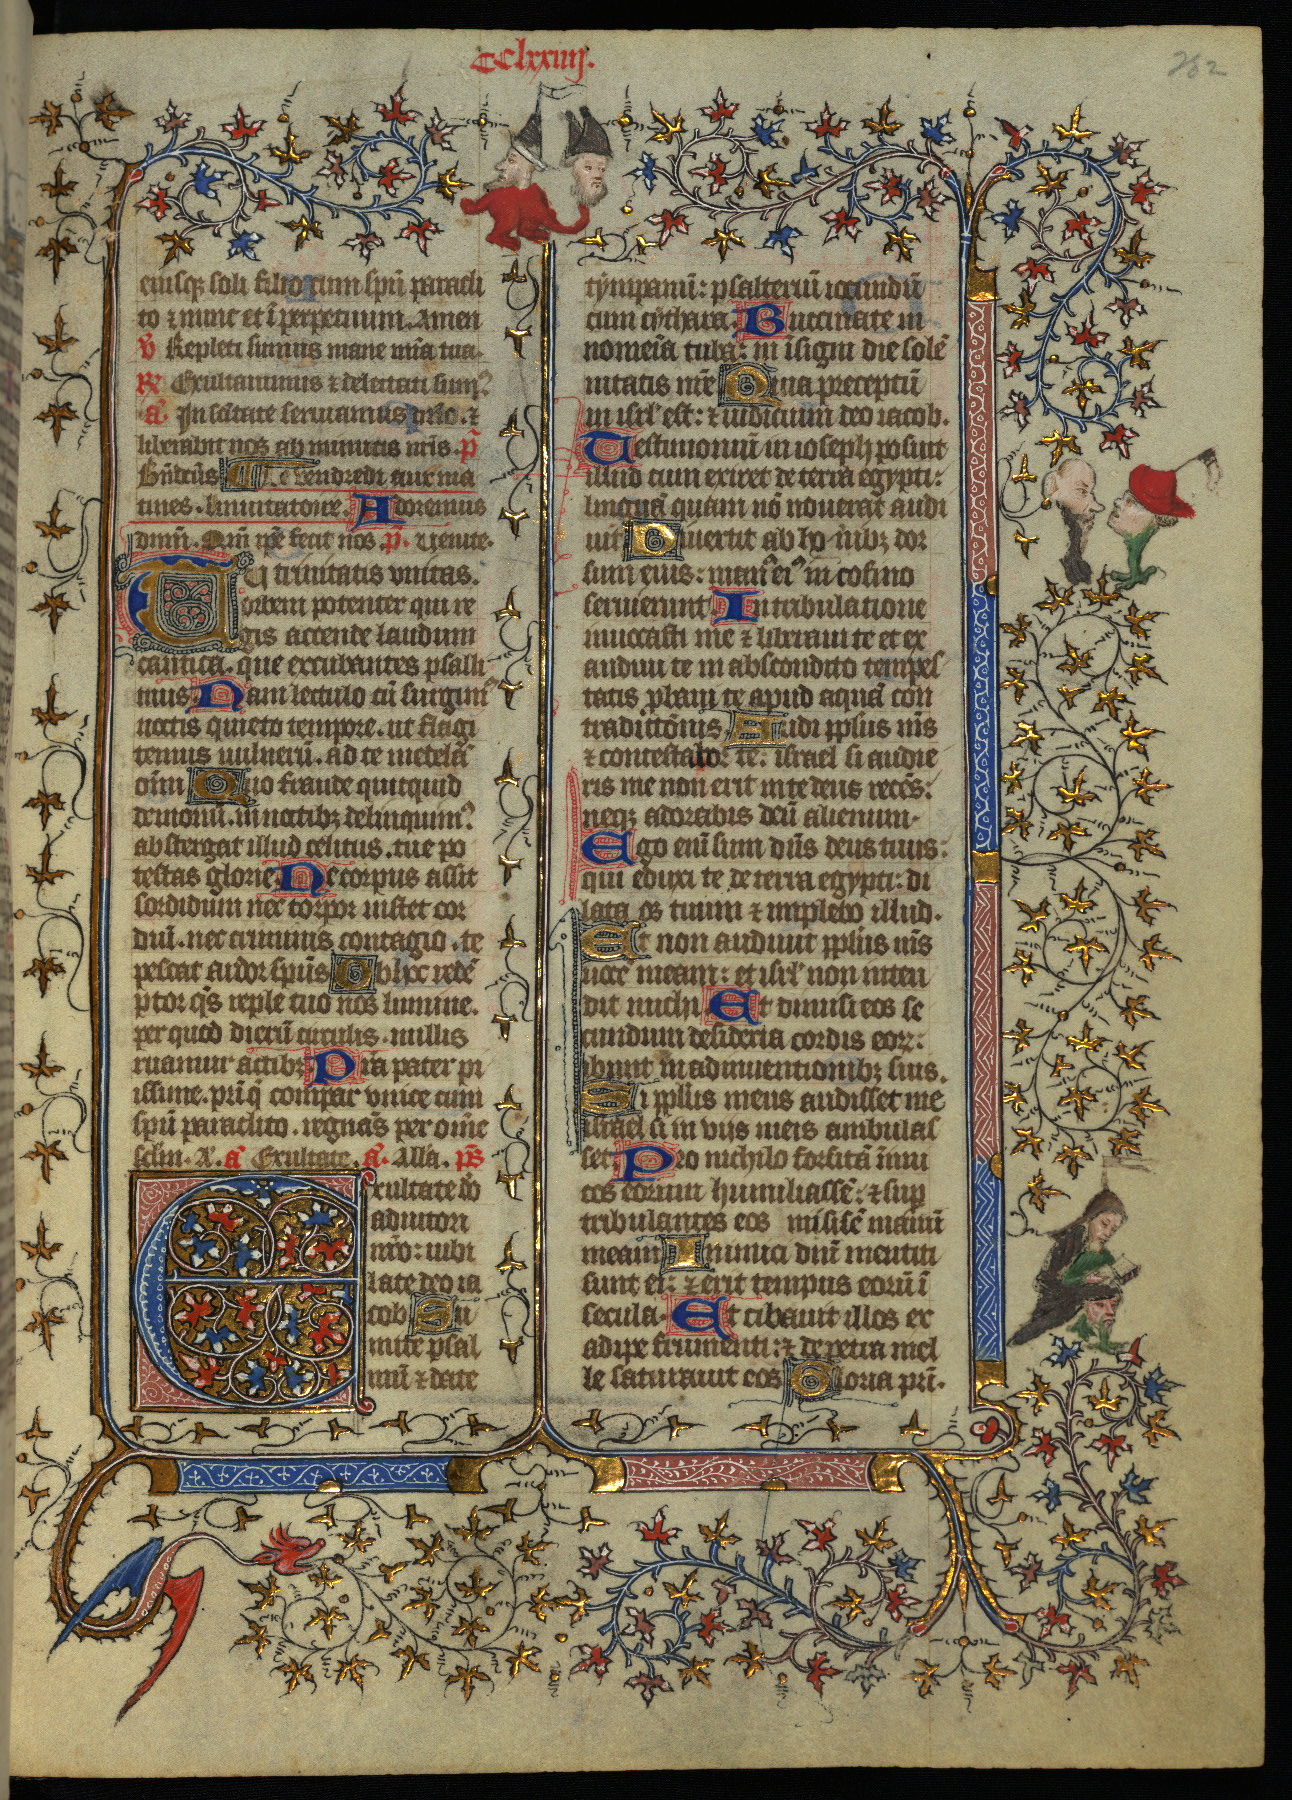 CClxxiiij.
262
eiusq3 soli filio cum spū paracli
to ⁊ nunc et ī perpetuum. Amen
v̄ Repleti sumus mane mīa tua.
R̄ Exultauimus ⁊ delectati sum9
a. In scītate seruiamus dn̄o. ⁊
liberabit nos ab inimicis nr̄is. p̄
Bn̄dc̄us Le vendredi aux ma
tines. Inuitatoire. Adoremus
dnm̄. Qm̄ ip̄e fecit nos p̄. Uenite.
Tu trinitatis vnitas.
orbem potenter qui re
gis accende laudum
cantica. que excubantes psalli
mus Nam lectulo cū surgim9
noctis quieto tempore. ut flagi
temus uulnerū. ad te medelā
oīm Quo fraude quicquid
demonū. in noctib3 delinquim9
abstergat illud celitus. tue po
testas glorie Ne corpus assit
sordidum nec torpor instet cor
diū. nec criminis contagio. te
pescat ardor spūs Ob hoc redē
ptor q̄s reple tuo nos lumine.
per quod dierū circulis. nullis
ruamur actib3 P̄ra pater pi
issime. pr̄iq̄ compar vnice cum
spū paraclito. regnās per omē
sclm. A. a. Exultate. a. Alla. p̄s
Exultate dō
adiutori
nr̄o: iubi
late deo ia
cob Su
mite psal
mū ⁊ date
tympanū: psalteriū iocundū
cum cythara. Buccinate in
nomeīa tuba: in īsigni die solē
nitatis nr̄e Quia preceptū
in isrl' est: ⁊ iudicium deo iacob.
Testimoniū in ioseph posuit
illud cum exiret de terra egypti:
linguā quam nō nouerat audi
uit Diuertit ab hon̄ib3 dor
sum eius: man9 ei9 in cofino
seruierunt In tribulatione
inuocasti me ⁊ liberaui te et ex
audiui te in abscondito tempes
tatis. ꝓbaui te apud aquā con
tradictōnis Audi pp̄lus m̄s
⁊ contestabor te: israel si audie
ris me non erit in te deus recēs:
neq3 adorabis deū alienum.
Ego enī sum dn̄s deus tuus:
qui eduxi te de terra egypti: di
lata os tuum ⁊ implebo illud.
Et non audiuit pp̄lus m̄s
uocē meam: et isrl' non inten
dit michi Et dimisi eos se
cundum desideria cordis eor̄:
ibunt in adinuentionib3 suis.
Si pp̄lus meus audisset me
israel si in vijs meis ambulas
set Pro nichilo forsitā inimi
cos eorum humiliassē: ⁊ sup
tribulantes eos misisē manū
meam Inimici dnī mentiti
sunt ei: ⁊ erit tempus eorū ī
secula. Et cibauit illos ex
adipe frumenti: ⁊ de petra mel
le saturauit eos Gloria pr̄i.